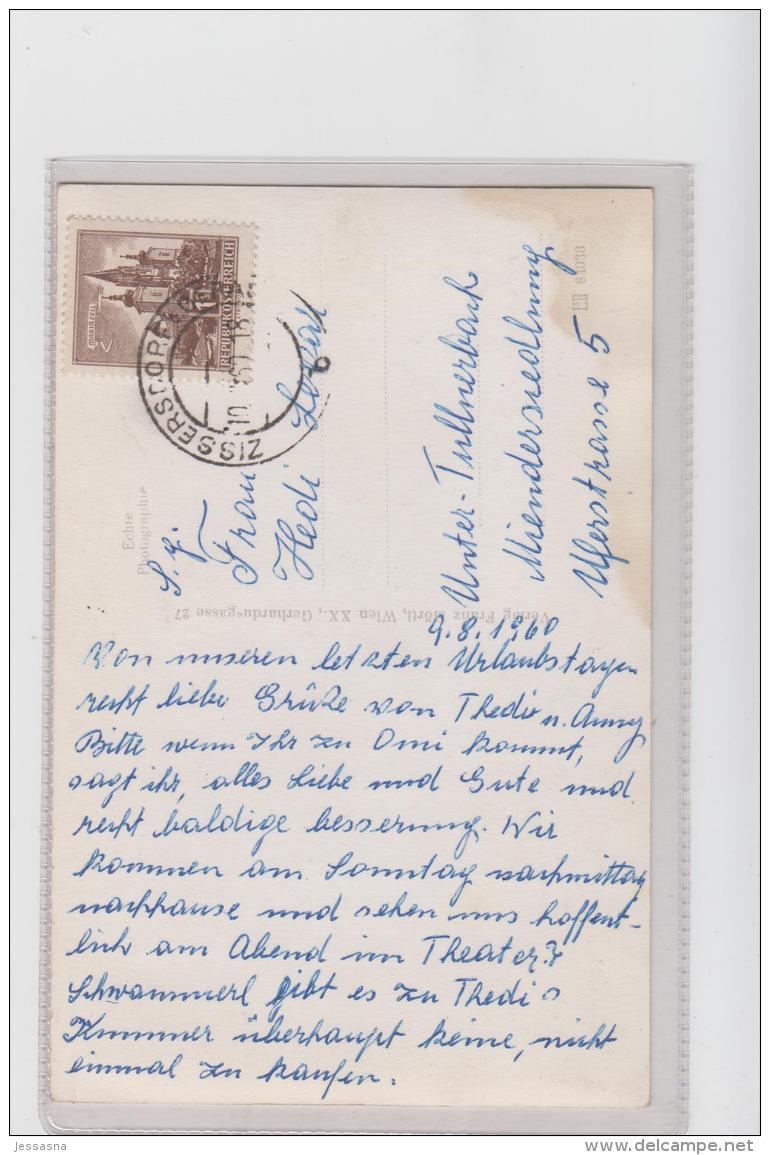 MARIAZELL
REPUBLIK ÖSTERREICH
ZISSERSDORF
Echte
Photographie
S. g.
Frau
Hedi
Unter-Tullnerbach
Miendersiedlung
Uferstrasse 5
LII 84036
Verlag Franz Mörtl, Wien XX., Gerhardusgasse 27
9.8.1960
Von unseren letzten Urlaubstagen
recht liebe Grüße von Thedi u. Anny
Bitte wenn Ihr zu Omi kommt,
sagt ihr, alles Liebe und Gute und
recht baldige besserung. Wir
kommen am Sonntag nachmittag
nachhause und sehen uns hoffent-
lich am Abend im Theater?
Schwammerl gibt es zu Thedi's
Kummer überhaupt keine, nicht
einmal zu kaufen.
jessasna
www.delcampe.net